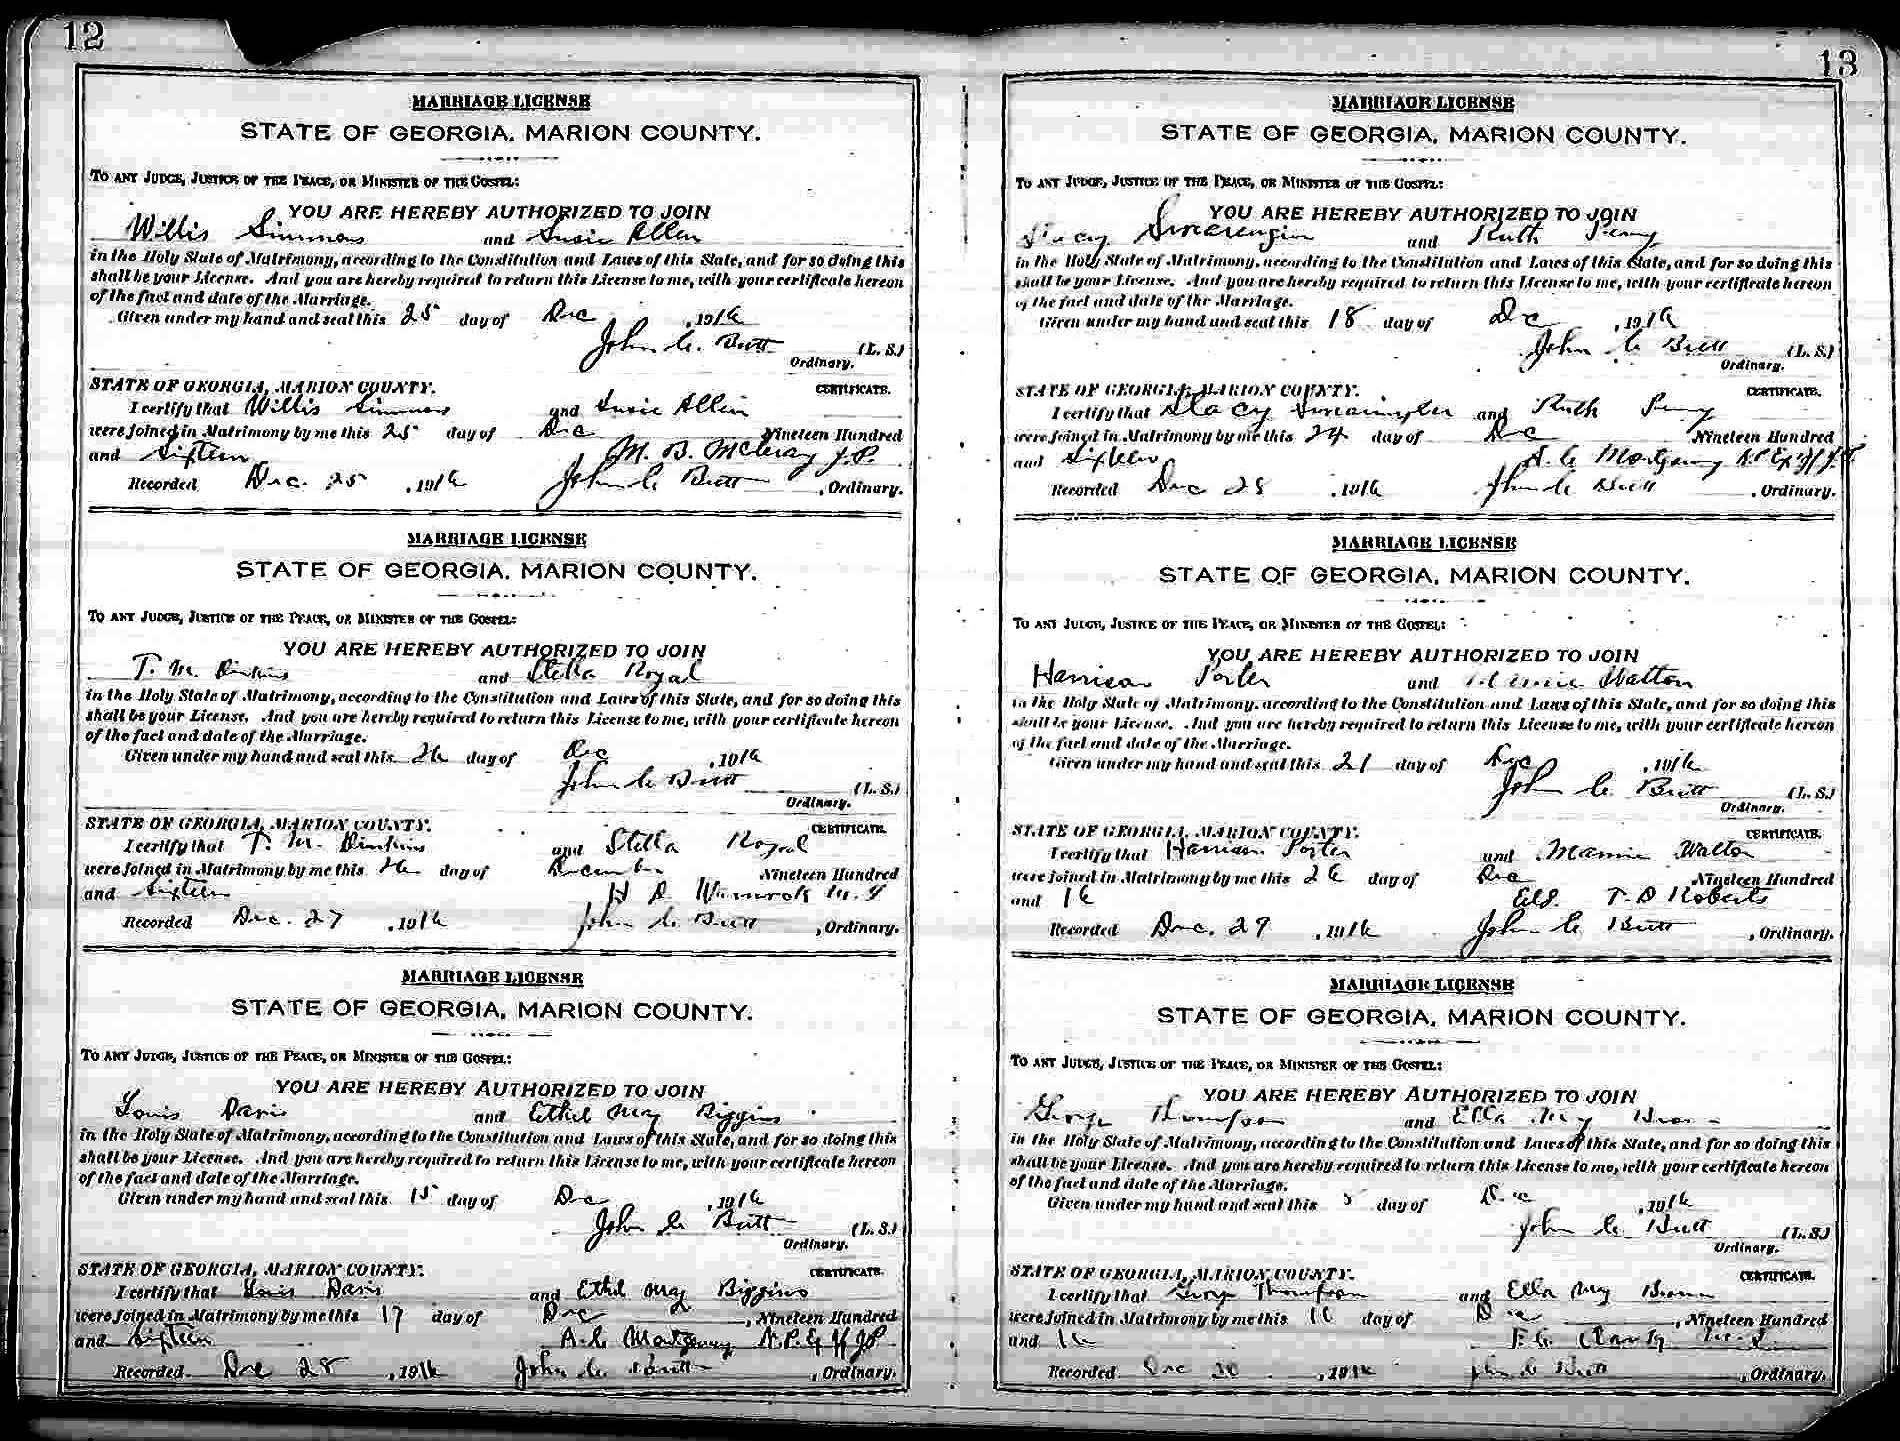 12
MARRIAGE LICENSE
STATE OF GEORGIA, MARION COUNTY.
TO ANY JUDGE, JUSTICE OF THE PEACE, OR MINISTER OF THE GOSPEL:
YOU ARE HEREBY AUTHORIZED TO JOIN
Willis Simmons and Susie Allen
in the Holy State of Matrimony, according to the Constitution and Laws of this State, and for so doing this
shall be your License. And you are hereby required to return this License to me, with your certificate hereon
of the fact and date of the Marriage.
Given under my hand and seal this 25 day of Dec , 1916
John C. Butt (L. S.)
Ordinary.
STATE OF GEORGIA, MARION COUNTY. CERTIFICATE.
I certify that Willis Simmons and Susie Allen
were joined in Matrimony by me this 25 day of Dec Nineteen Hundred
and Sixteen M. B. McCray J.P.
Recorded Dec. 25 , 1916 John C. Butt , Ordinary.
MARRIAGE LICENSE
STATE OF GEORGIA, MARION COUNTY.
TO ANY JUDGE, JUSTICE OF THE PEACE, OR MINISTER OF THE GOSPEL:
YOU ARE HEREBY AUTHORIZED TO JOIN
T. M. Dinkins and Stella Royal
in the Holy State of Matrimony, according to the Constitution and Laws of this State, and for so doing this
shall be your License. And you are hereby required to return this License to me, with your certificate hereon
of the fact and date of the Marriage.
Given under my hand and seal this 26 day of Dec , 1916
John C. Butt (L. S.)
Ordinary.
STATE OF GEORGIA, MARION COUNTY. CERTIFICATE.
I certify that T. M. Dinkins and Stella Royal
were joined in Matrimony by me this 26 day of December Nineteen Hundred
and Sixteen H D Warnock M. G
Recorded Dec. 27 , 1916 John C. Butt , Ordinary.
MARRIAGE LICENSE
STATE OF GEORGIA, MARION COUNTY.
TO ANY JUDGE, JUSTICE OF THE PEACE, OR MINISTER OF THE GOSPEL:
YOU ARE HEREBY AUTHORIZED TO JOIN
Louis Davis and Ethel May Biggins
in the Holy State of Matrimony, according to the Constitution and Laws of this State, and for so doing this
shall be your License. And you are hereby required to return this License to me, with your certificate hereon
of the fact and date of the Marriage.
Given under my hand and seal this 15 day of Dec , 1916
John C. Butt (L. S.)
Ordinary.
STATE OF GEORGIA, MARION COUNTY. CERTIFICATE.
I certify that Louis Davis and Ethel May Biggins
were joined in Matrimony by me this 17 day of Dec , Nineteen Hundred
and Sixteen A. C. Montgomery N.P. & Ex Of J.P.
Recorded Dec 28 , 1916 John C. Butt , Ordinary.
13
MARRIAGE LICENSE
STATE OF GEORGIA, MARION COUNTY.
TO ANY JUDGE, JUSTICE OF THE PEACE, OR MINISTER OF THE GOSPEL:
YOU ARE HEREBY AUTHORIZED TO JOIN
Stacy Swearengin and Ruth Perry
in the Holy State of Matrimony, according to the Constitution and Laws of this State, and for so doing this
shall be your License. And you are hereby required to return this License to me, with your certificate hereon
of the fact and date of the Marriage.
Given under my hand and seal this 18 day of Dec , 1916
John C. Butt (L. S.)
Ordinary.
STATE OF GEORGIA, MARION COUNTY. CERTIFICATE.
I certify that Stacy and Ruth Perry
were joined in Matrimony by me this 24 day of Dec Nineteen Hundred
and Sixteen A. C. Montgomery N.P. Ex Of J.P.
Recorded Dec 28 , 1916 John C Butt , Ordinary.
MARRIAGE LICENSE
STATE OF GEORGIA, MARION COUNTY.
TO ANY JUDGE, JUSTICE OF THE PEACE, OR MINISTER OF THE GOSPEL:
YOU ARE HEREBY AUTHORIZED TO JOIN
Harrison Porter and Mamie Walton
in the Holy State of Matrimony, according to the Constitution and Laws of this State, and for so doing this
shall be your License. And you are hereby required to return this License to me, with your certificate hereon
of the fact and date of the Marriage.
Given under my hand and seal this 21 day of Dec , 1916
John C. Butt (L. S.)
Ordinary.
STATE OF GEORGIA, MARION COUNTY. CERTIFICATE.
I certify that Harrison Porter and Mamie Walton
were joined in Matrimony by me this 26 day of Dec Nineteen Hundred
and 16 Eld. T. D Roberts
Recorded Dec. 27 , 1916 John C Butt , Ordinary.
MARRIAGE LICENSE
STATE OF GEORGIA, MARION COUNTY.
TO ANY JUDGE, JUSTICE OF THE PEACE, OR MINISTER OF THE GOSPEL:
YOU ARE HEREBY AUTHORIZED TO JOIN
George Thompson and Ella May Brown
in the Holy State of Matrimony, according to the Constitution and Laws of this State, and for so doing this
shall be your License. And you are hereby required to return this License to me, with your certificate hereon
of the fact and date of the Marriage.
Given under my hand and seal this 5 day of Dec , 1916
John C. Butt (L. S.)
Ordinary.
STATE OF GEORGIA, MARION COUNTY. CERTIFICATE.
I certify that George Thompson and Ella May Brown
were joined in Matrimony by me this 16 day of Dec , Nineteen Hundred
and 16 F. C.
Recorded Dec 30 , 1916 John C Butt , Ordinary.